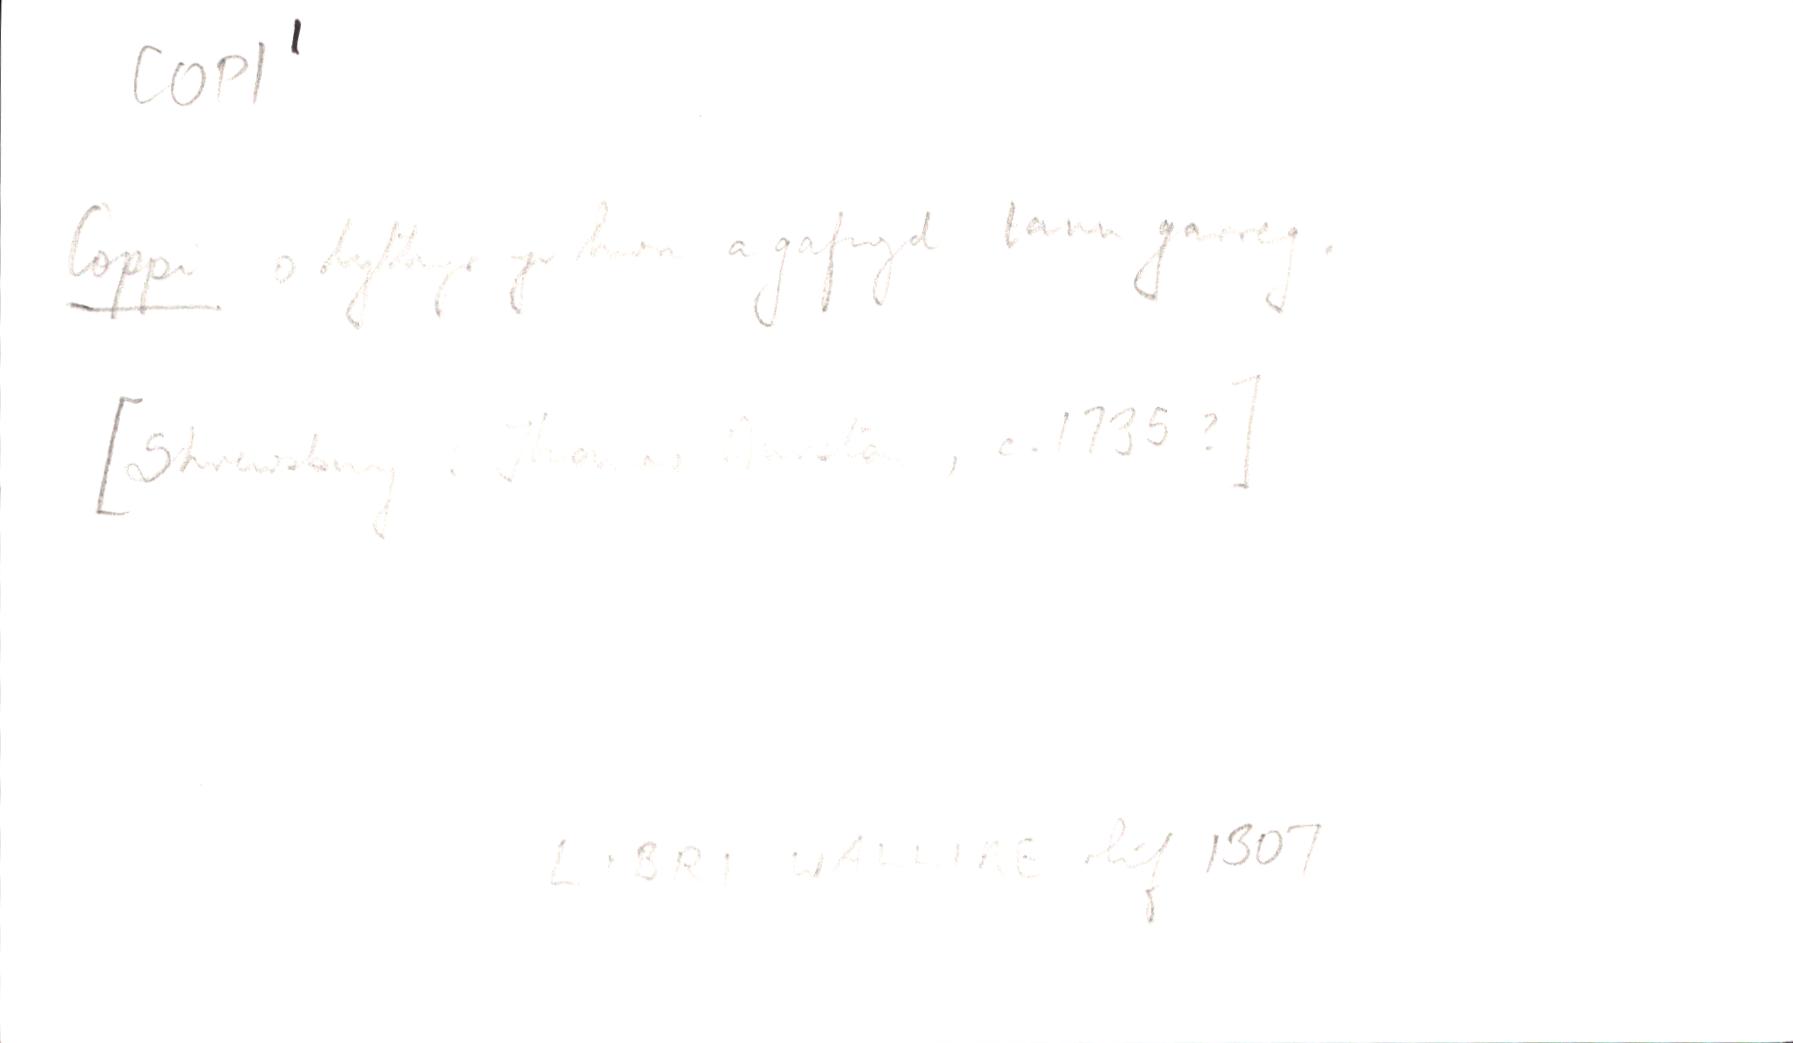 COPI
Coppi o lythyr yr hwn a gafwyd tann garreg.
[Shrewsbury : Thomas Durston, c.1735?]
LIBRI WALLIAE rhif 1307